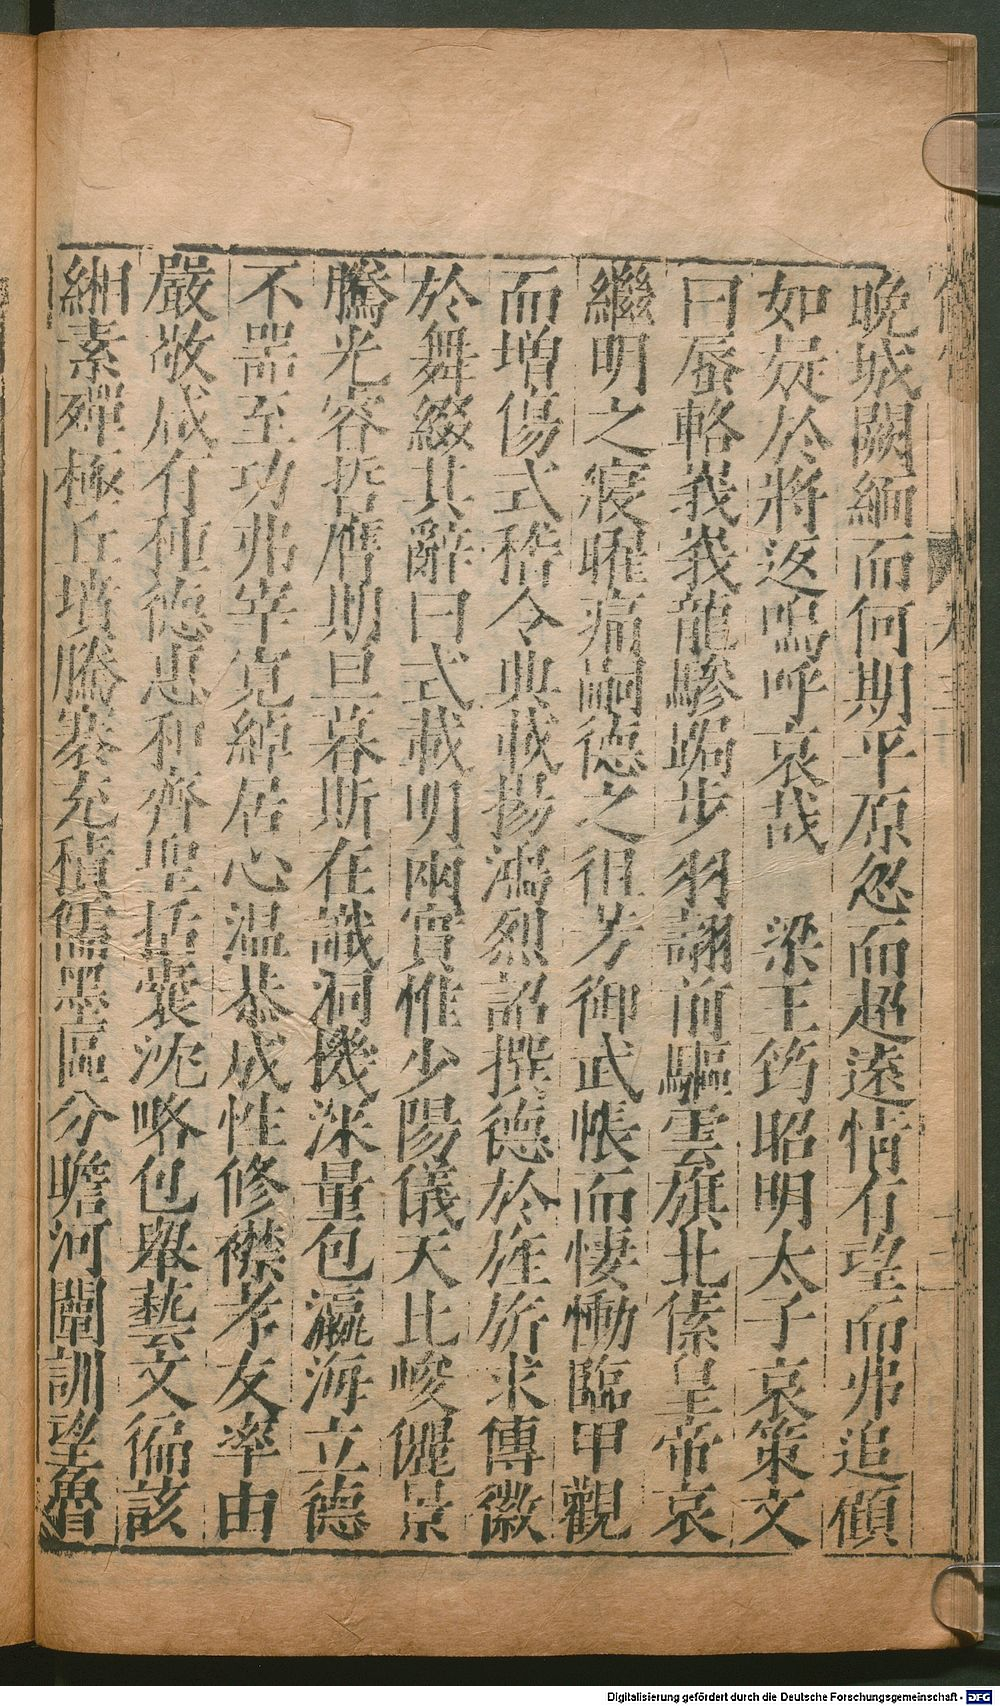 晚城闕緬而何期平原忽而超遠情有望而弗追傾
如疑於將返嗚呼哀哉　梁王筠昭明太子哀策文
曰蜃輅峩峩龍驂跼步羽翿前驅雲旗北傃皇帝哀
繼明之寢曜痛嗣德之徂芳御武帳而悽慟臨甲觀
而增傷式稽令典載揚鴻烈詔撰德於旌旂求傳徽
於舞綴其辭曰式載明兩實惟少陽儀天比峻儷景
騰光容哲膺期旦暮斯在識洞機深量包瀛海立德
不器至功弗宰寬綽居心温恭成性修襟孝友率由
嚴敬咸有種德惠和齊聖括囊沈略包舉藝文徧該
緗素殫極丘墳騰褰充積儒墨區分瞻河闡訓望魯
Digitalisierung gefördert durch die Deutsche Forschungsgemeinschaft - DFG